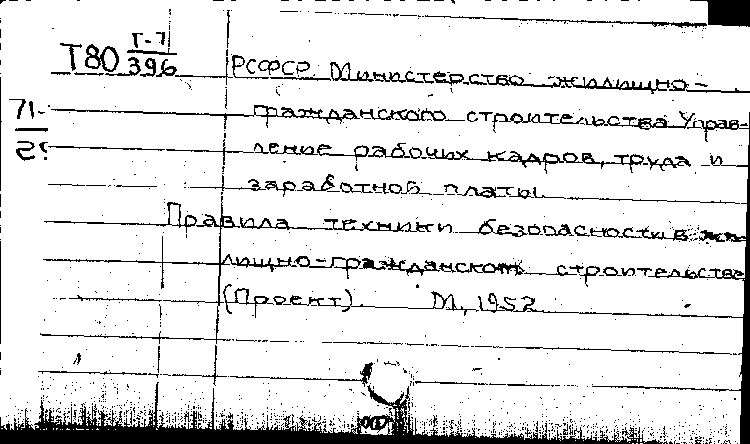 Т80 Г-7
396
РСФСР. Министерство жилищно-
гражданского строительства Управ-
71-
ление рабочих кадров, труда и
заработной платы.
Правила техники безопасности в жи-
лищно-гражданском строительстве
(Проект). М., 1952